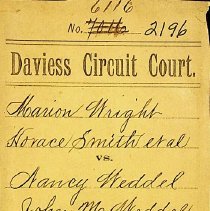 6116
No. 2196
Daviess Circuit Court.
Marion Wright
Horace Smith et al
vs.
Nancy Weddel
John M. Weddel